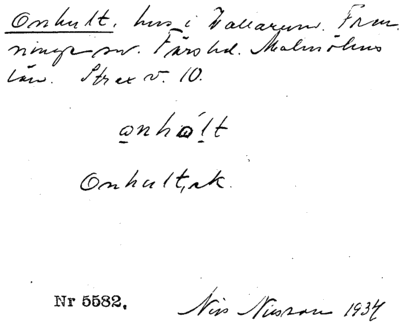 Onhult, hus i Vallarum. Fren-
ninge sn. Färs hd. Malmöhus
län. Strax v. 10.
o̤nhɷ́lt
Onhult, sk.
Nr 5582,
Nils Nilsson 1934